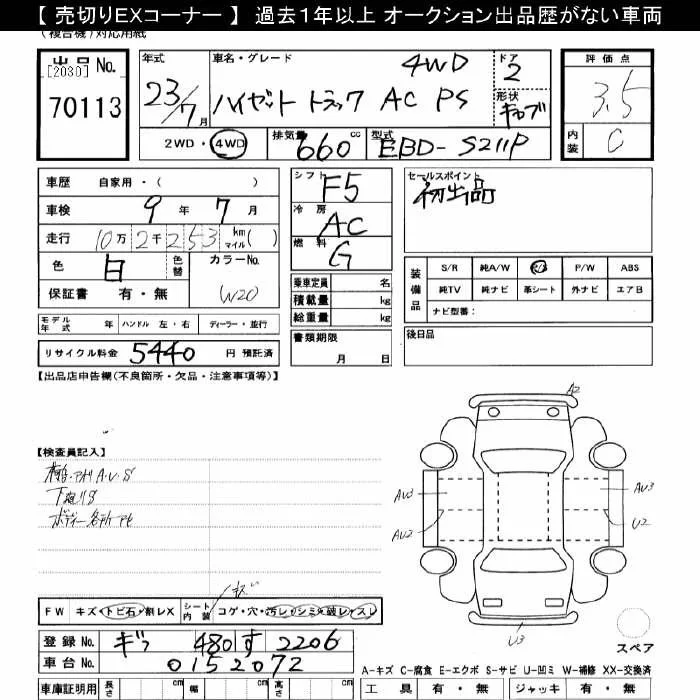 【 売切りEXコーナー 】 過去1年以上 オークション出品歴がない車両
(複合機)対応用紙
出品 No. [2030] 70113
年式 23/7月
車名・グレード ハイゼット トラック AC PS 4WD
ドア 2
形状 キャブ
評価点 3.5
内装 C
2WD・4WD 排気量 660 cc 型式 EBD-S211P
車歴 自家用・( )
車検 9年7月
走行 10万2千253 km マイル( )
色 白 色替 カラーNo. W20
保証書 有・無
シフト F5
冷房 AC
燃料 G
乗車定員 名
積載量 kg
総重量 kg
セールスポイント
初出品
装備品 S/R 純A/W P/W ABS
純TV 純ナビ 革シート 外ナビ エアB
ナビ型番:
モデル年式 年 ハンドル 左・右 ディーラー・並行
書類期限 月 日
後日品
リサイクル料金 5440 円 預託済
【出品店申告欄(不良箇所・欠品・注意事項等)】
A2
【検査員記入】
下廻りS
AU3 AU3
AU2 U2
キズ
FW キズ・トビ石・割レX シート内装 コゲ・穴・汚レ・シミ・破レ・スレ
U3
登録 No. 4801 す 2206
スペア
車台 No. 0152072
A-キズ C-腐食 E-エクボ S-サビ U-凹ミ W-補修 XX-交換済
車庫証明用 長さ cm 幅 cm 高さ cm 工具 有・無 ジャッキ 有・無